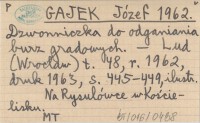 P GAJEK Józef 1962. P
Dzwonniczka do odganiania
burz gradowych. — Lud
(Wrocław) t. 48, r. 1962,
druk 1963, s. 445-449, ilustr.
Na Rysulówce w Koście-
lisku.
MT bi/016/0468